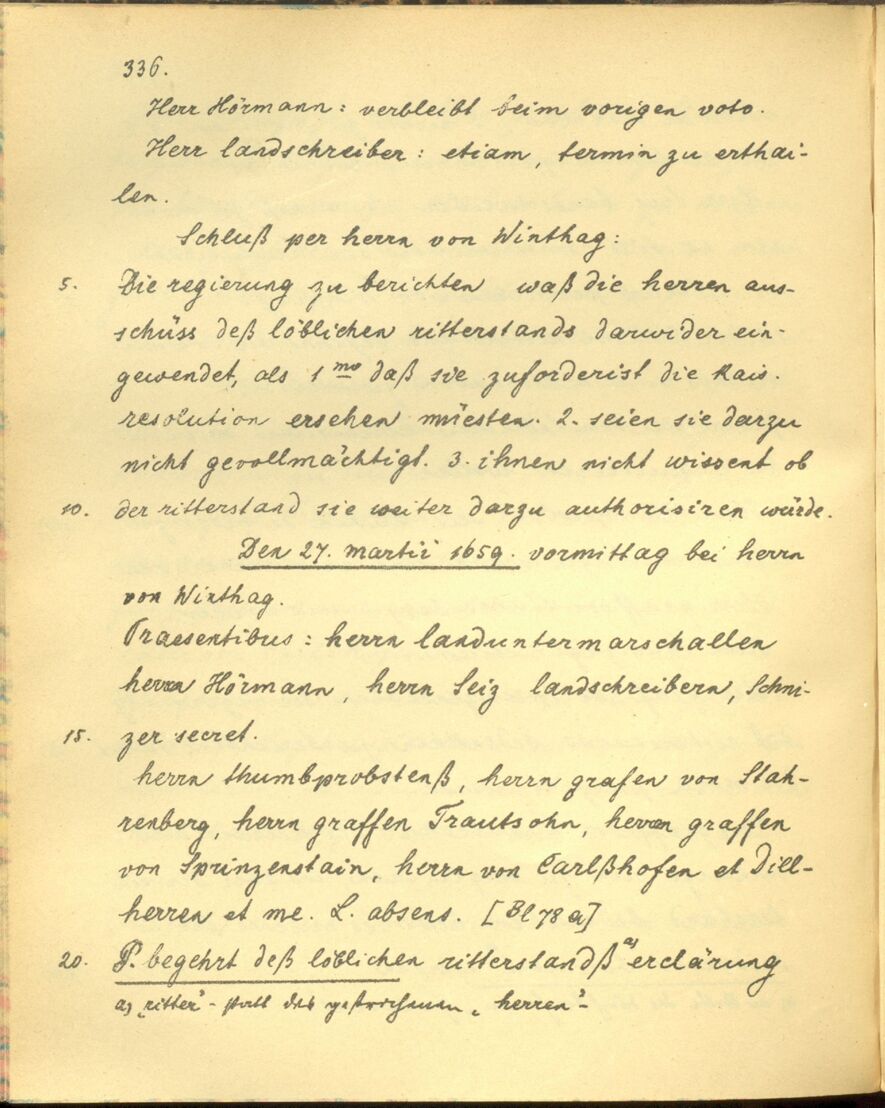 336.
Herr Hörmann: verbleibt beim vorigen voto.
Herr landschreiber: etiam, termin zu erthai-
len.
Schluß per herrn von Winthag:
5. Die regierung zu berichten waß die herren aus-
schüss deß löblichen ritterstands darwider ein-
gewendet, als 1mo daß sie zuforderist die Kais.
resolution ersehen müesten. 2. seien sie darzu
nicht gevollmächtigt. 3. ihnen nicht wissent ob
10. der ritterstand sie weiter darzu authorisiren würde.
Den 27. martii 1659. vormittag bei herrn
von Winthag.
Praesentibus: herrn landuntermarschallen
herrn Hörmann, herrn Seiz landschreibern, Schni-
15. zer secret.
herrn thumbprobstenß, herrn grafen von Stah-
renberg, herrn graffen Trautsohn, herrn graffen
von Sprinzenstain, herrn von Carlßhofen et Dill-
herren et me. L. absens. [Bl 78 a]
20. P. begehrt deß löblichen ritterstandß a) erclärung
a) "ritter"- statt des gestrichenen "herren"-